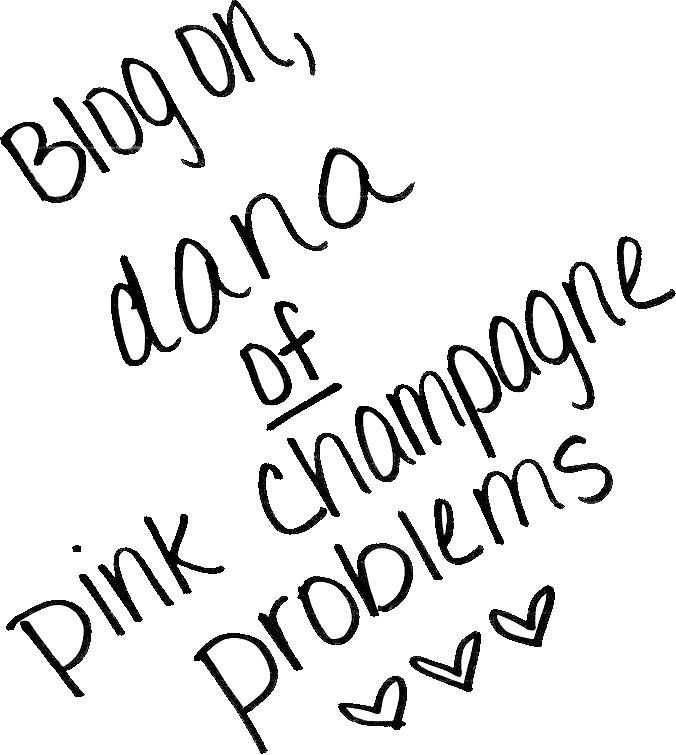 Blog on,
dana
of
pink champagne
problems